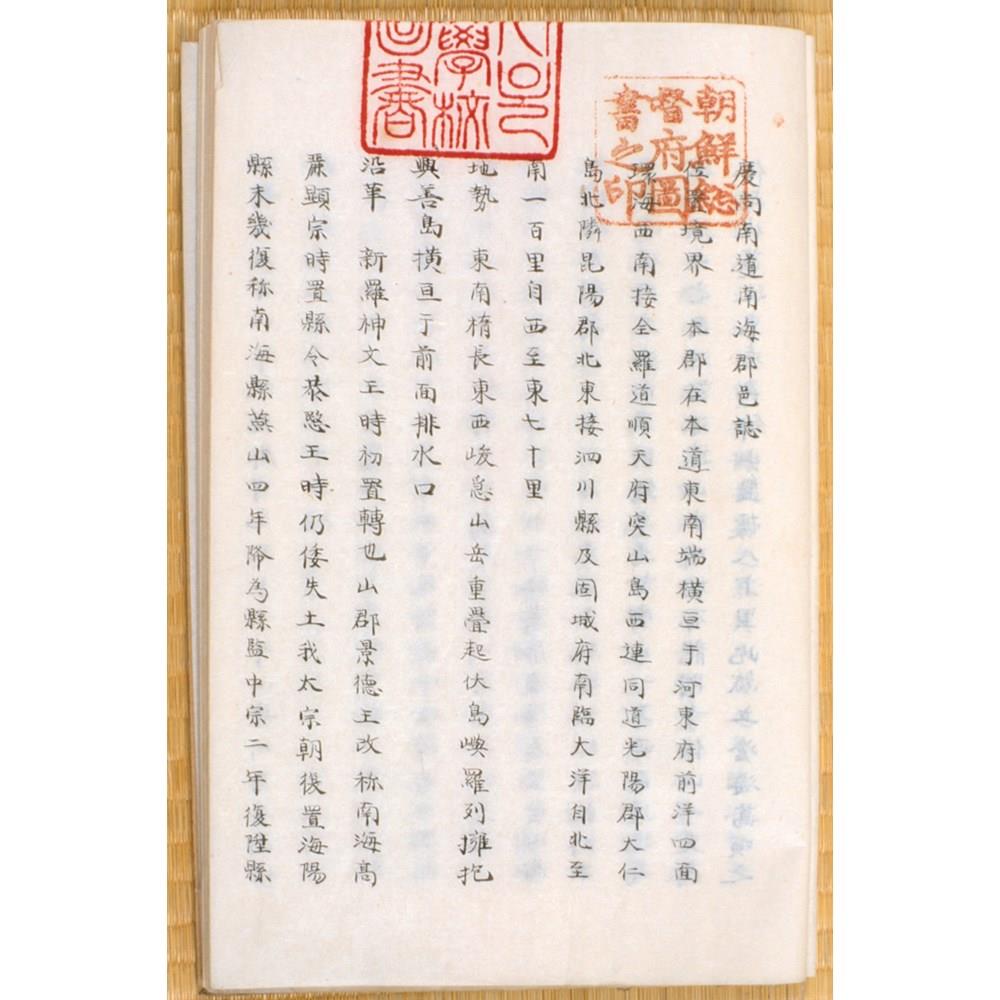 慶尚南道南海郡邑誌
位置境界 本郡在本道東南端横亘于河東府前洋四面
環海西南接全羅道順天府突山島西連同道光陽郡大仁
島北隣昆陽郡北東接泗川縣及固城府南臨大洋自北至
南一百里自西至東七十里
地勢 東南楕長東西峻急山岳重疊起伏島嶼羅列擁抱
興善島横亘于前面排水口
沿革 新羅神文王時初置轉也山郡景德王改称南海高
麗顯宗時置縣令恭愍王時仍倭失土我太宗朝復置海陽
縣未幾復称南海縣燕山四年降為縣監中宗二年復陞縣
朝鮮総
督府圖
書之印
學校
書